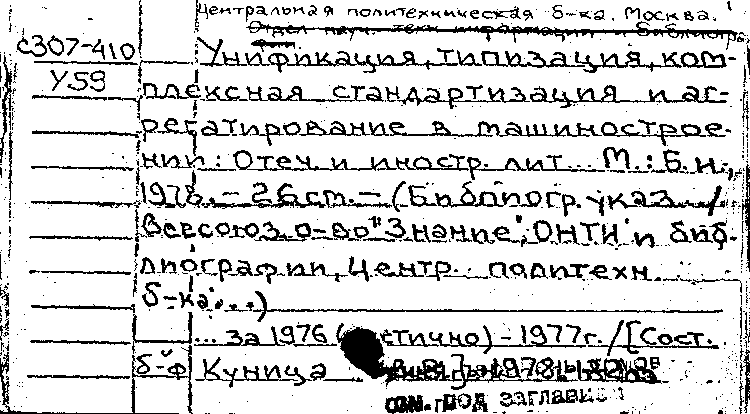 Центральная политехническая б-ка. Москва.
Отдел науч. техн. информации и библиогр.
с307-410
У59
Унификация, типизация, ком-
плексная стандартизация и аг-
регатирование в машинострое-
нии: Отеч. и иностр. лит... М.: Б.и.,
1978. – 26 ст. – (Библиогр. указ. /
Всесоюз. о-во "Знание", ОНТИ и биб-
лиографии, Центр. политехн.
б-ка...)
... за 1976 (частично) - 1977г. / [Сост.
б-ф Куница
см. под заглавием